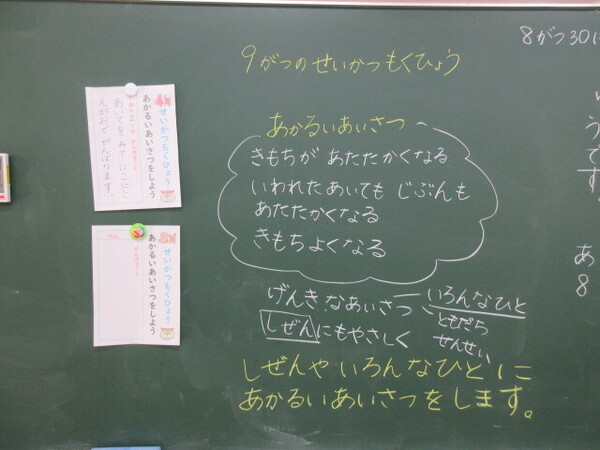 8がつ30に
9がつのせいかつもくひょう
あかるいあいさつ
きもちが あたたかくなる
いわれたあいても じぶんも
あたたかくなる
きもちよくなる
げんきなあいさつ いろんなひと
ともだち
せんせい
しぜんにもやさしく
しぜんや いろんなひと に
あかるいあいさつをします。
うです。
あ
8
せいかつもくひょう
あかるいあいさつをしよう
あいてを みて にこにこ
えがおで がんばります。
せいかつもくひょう
あかるいあいさつをしよう